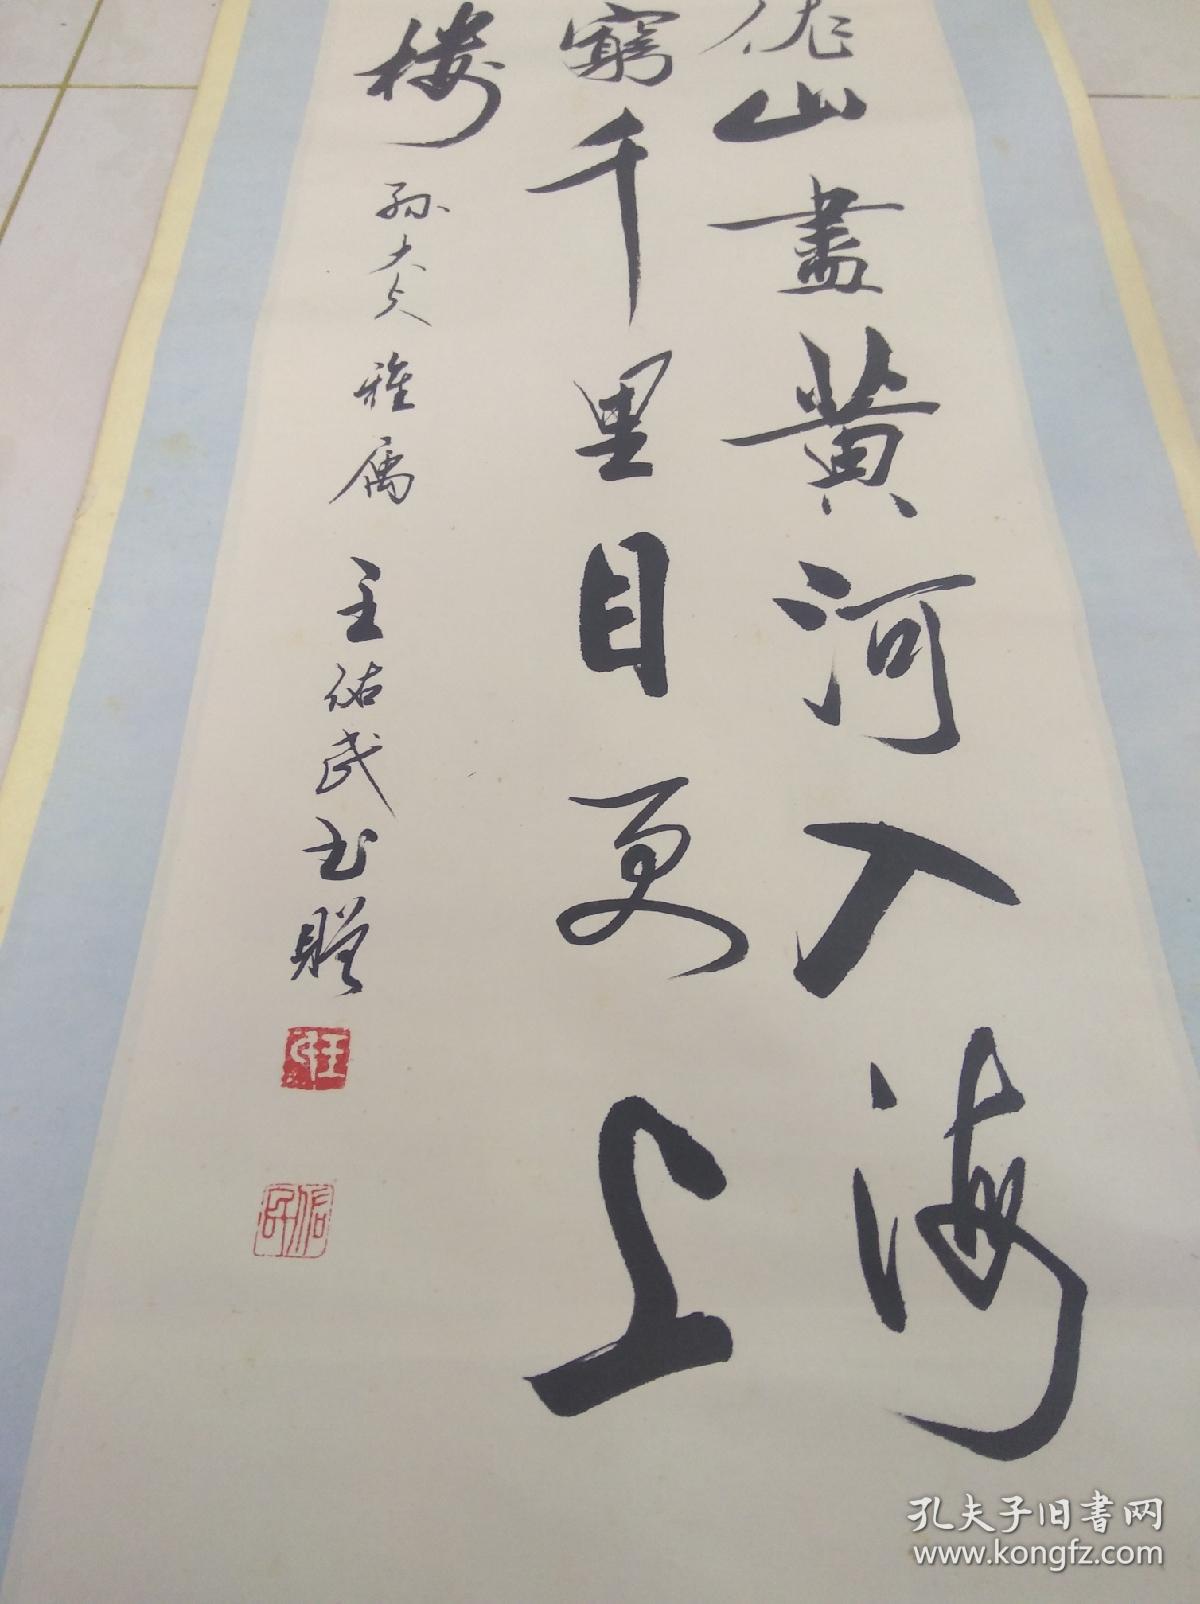 依山盡黄河入海
窮千里目更上
楼
孙大夫雅属
王佑民书赠
孔夫子旧书网
www.kongfz.com